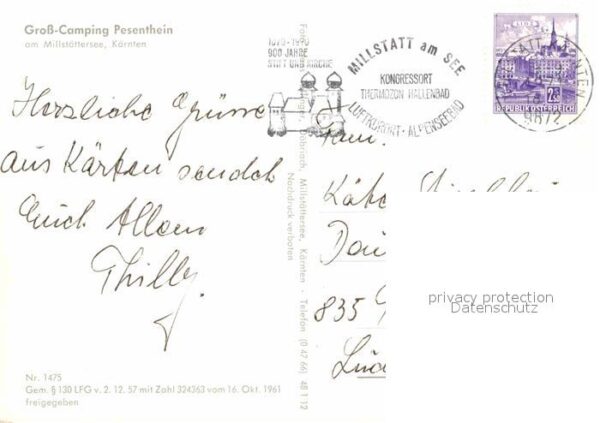 Groß-Camping Pesenthein
am Millstättersee, Kärnten
1070-1970
900 JAHRE
STIFT UND KIRCHE
MILLSTATT am SEE
KONGRESSORT
THERMOZON HALLENBAD
LUFTKURORT - ALPENSEEBAD
LINZ
REPUBLIK ÖSTERREICH
9872
Herzliche Grüsse
aus Kärten sendet
Euch Allen
Thilly
Döbriach, Millstättersee, Kärnten - Telefon (0 47 66) 48 1 12
Nachdruck verboten
Fam.
835
privacy protection
Datenschutz
Nr. 1475
Gem. § 130 LFG v. 2. 12. 57 mit Zahl 324363 vom 16. Okt. 1961
freigegeben